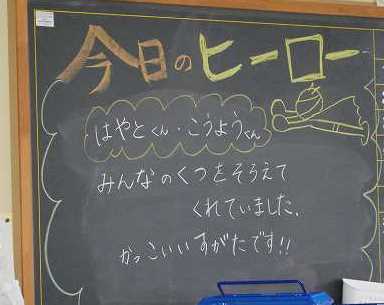 今日のヒーロー
はやとくん・こうようくん
みんなのくつをそろえて
くれていました。
かっこいいすがたです!!